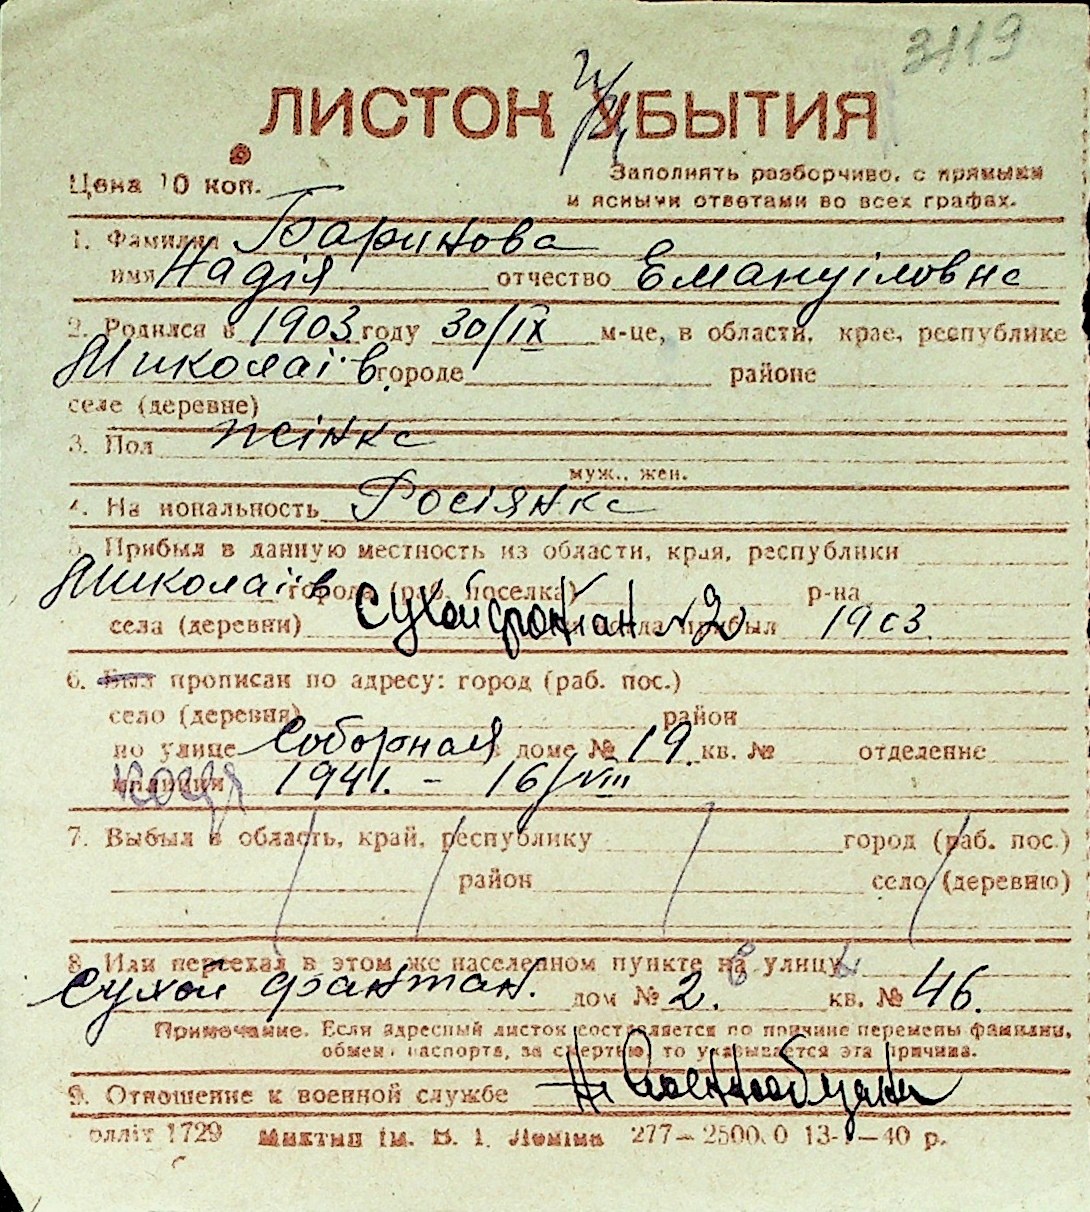 3119
ЛИСТОК УБЫТИЯ
Цена 10 коп.
Заполнять разборчиво, с прямыми
и ясными ответами во всех графах.
1. Фамилия Барінова
имя Надія отчество Емануіловна
2. Родился в 1903 году 30/IX м-це, в области, крае, республике
Миколаїв. городе районе
селе (деревне)
3. Пол жінка
муж., жен.
4. Национальность Росіянка
5. Прибыл в данную местность из области, края, республики
Миколаїв города (раб. поселка) р-на
села (деревни) Сухой фонтан №2 прибыл 1903
6. Был прописан по адресу: город (раб. пос.)
село (деревня) район
по улице Соборная в доме № 19. кв. № отделение
милиции 1941. - 16/VIII
7. Выбыл в область, край, республику город (раб. пос.)
район село (деревню)
8. Или переехал в этом же населенном пункте на улицу
Сухой фантан. дом № 2. кв. № 46.
Примечание. Если адресный листок составляется по причине перемены фамилии,
обмена паспорта, за смертью, то указывается эта причина.
9. Отношение к военной службе
олліт 1729 ім. В. І. Леніна 277—2500.0 13- —40 р.